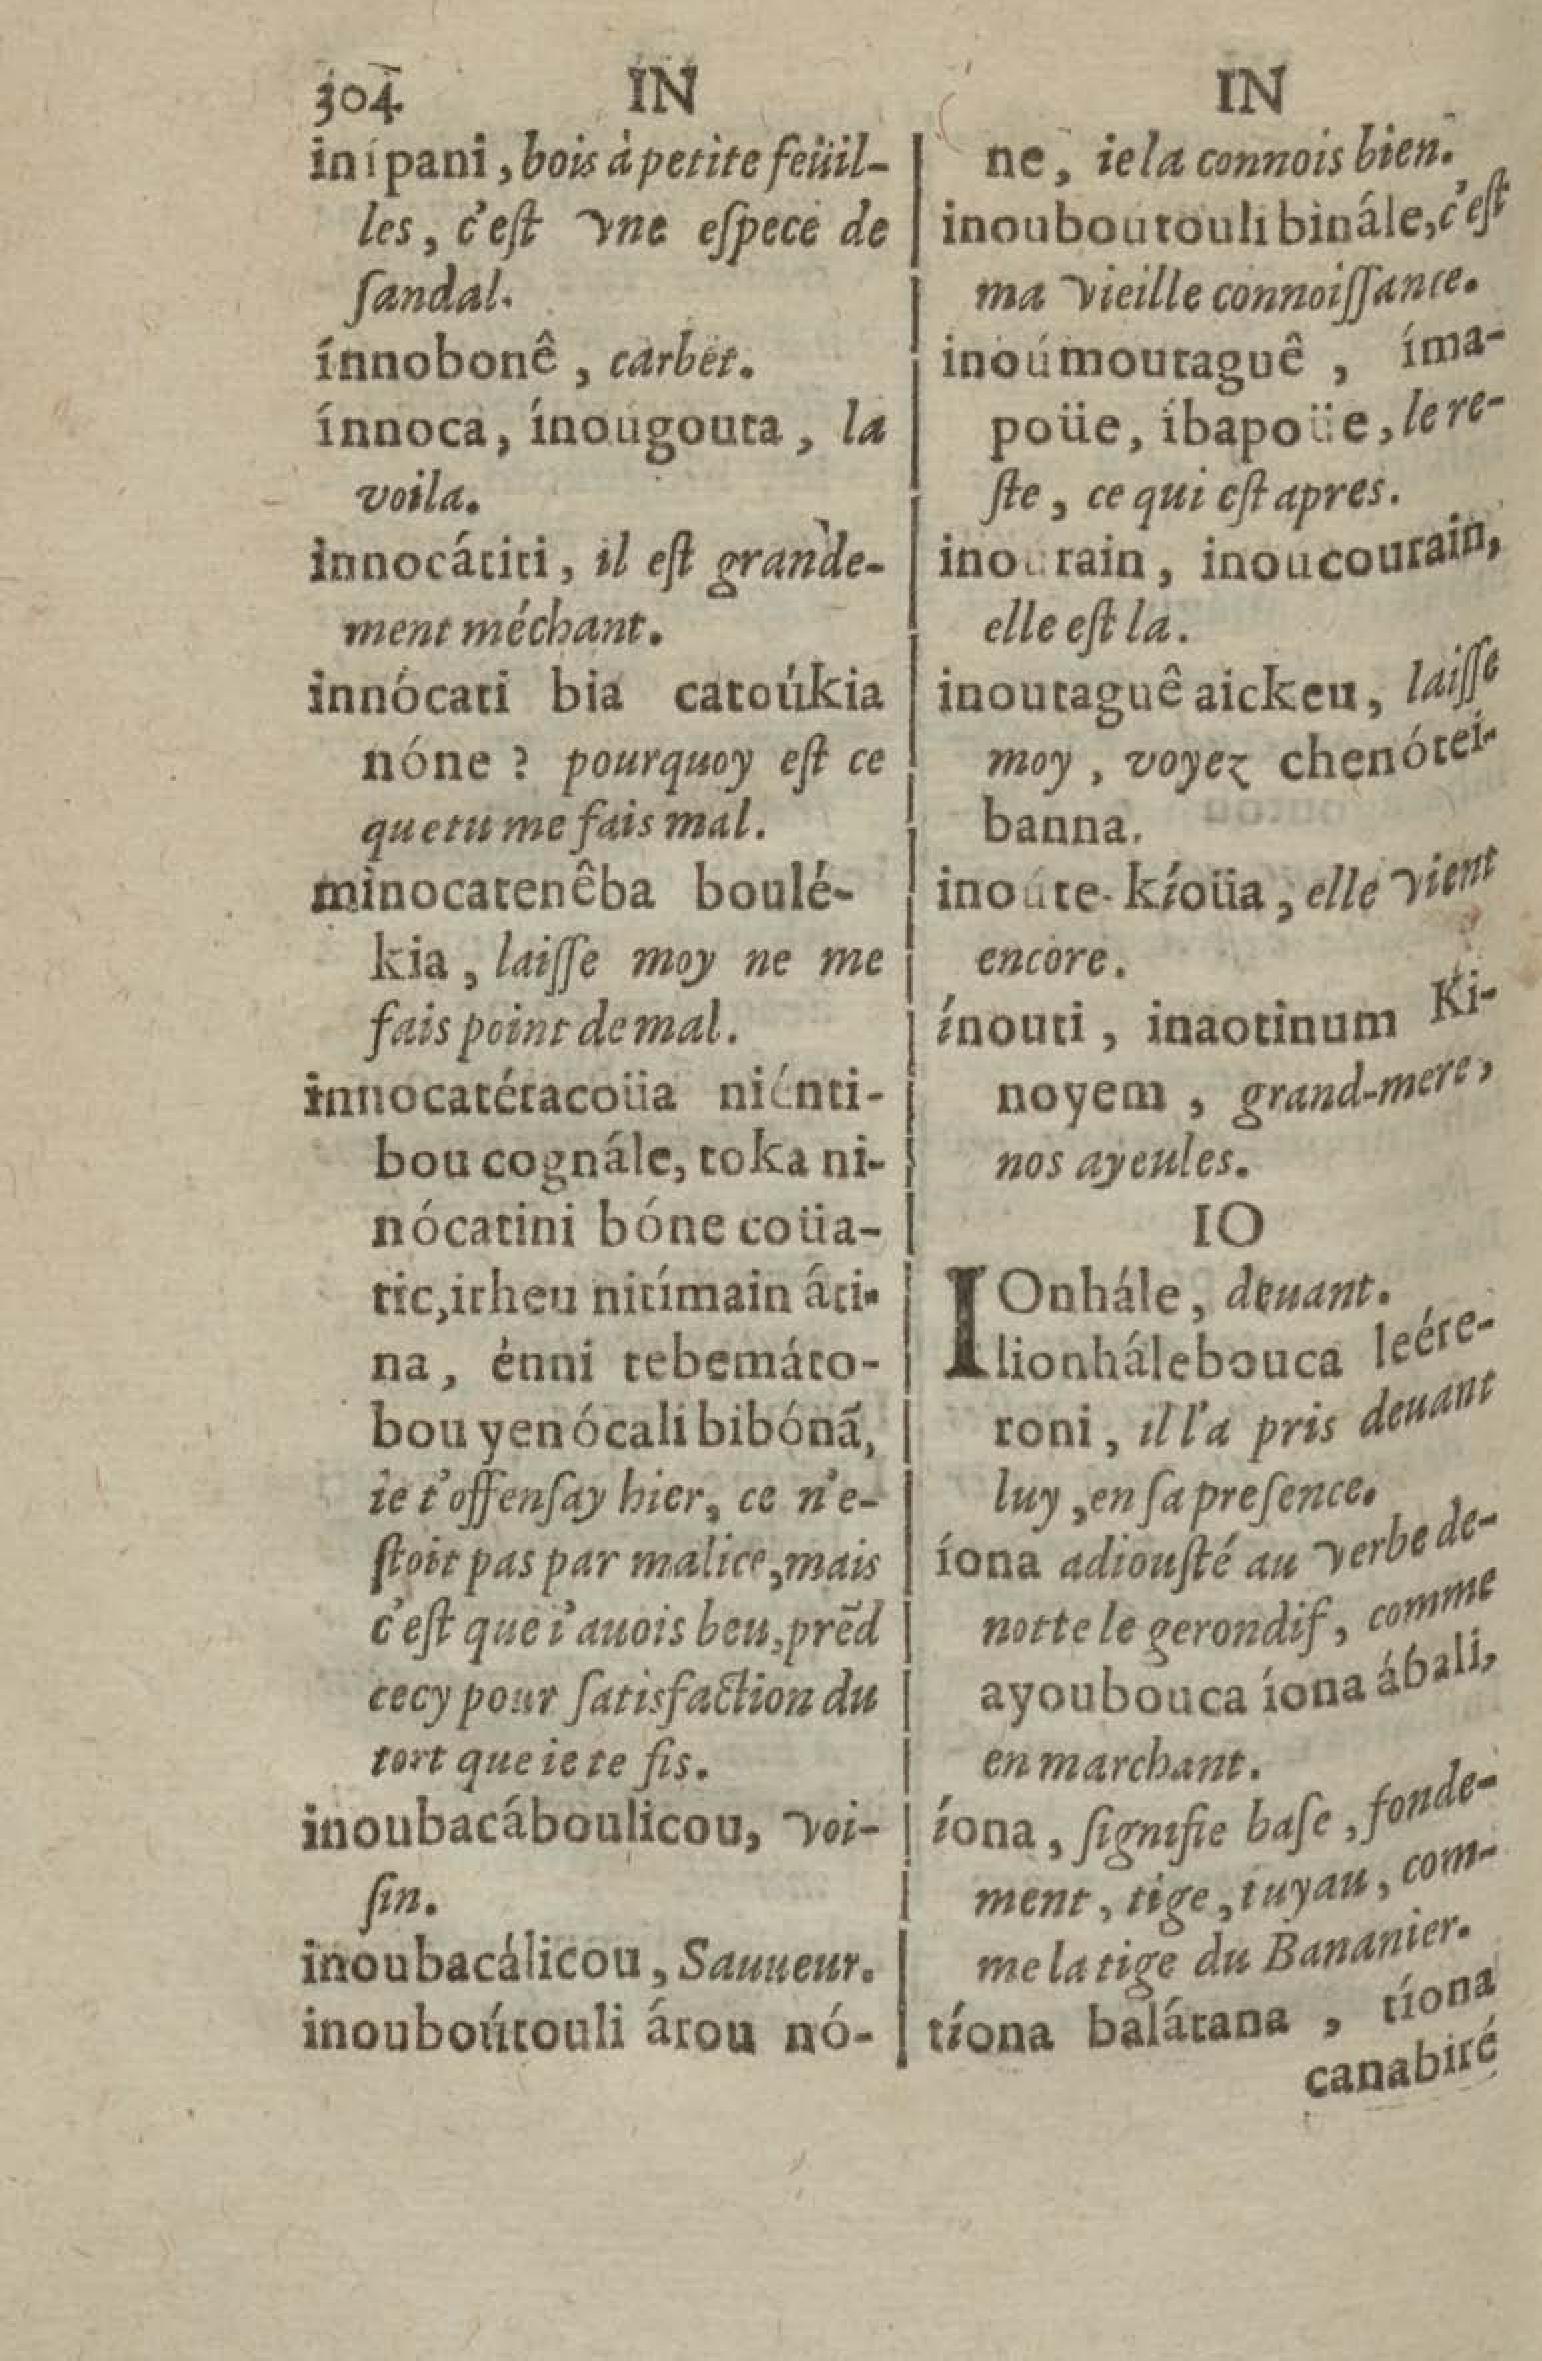 304 IN
inípani, bois à petite feüil-
les, c'eſt vne eſpece de
ſandal.
ínnobonê, carbet.
ínnoca, ínougouta, la
voila.
innocátiti, il eſt grande-
ment méchant.
innócati bia catoúkia
nóne ? pourquoy eſt ce
que tu me fais mal.
minocatenêba boulé-
kia, laiſſe moy ne me
fais point de mal.
innocatétacoüa niénti-
bou cognále, toka ni-
nócatini bóne coüa-
tic, irheu nitímain áti-
na, énni tebemáto-
bou yenócali bibónã,
ie t'offenſay hier, ce n'e-
ſtoit pas par malice, mais
c'eſt que i'auois beu, prẽd
cecy pour ſatisfaction du
tort que ie te fis.
inoubacáboulicou, voi-
ſin.
inoubacálicou, Sauueur.
inouboútouli átou nó-
IN
ne, ie la connois bien.
inouboutouli binále, c'eſt
ma vieille connoiſſance.
inoúmoutaguê, íma-
poüe, íbapoüe, le re-
ſte, ce qui eſt apres.
inourain, inoucourain,
elle eſt la.
inoutaguê aickeu, laiſſe
moy, voyez chenótei-
banna.
inoúte-kíoüa, elle vient
encore.
ínouti, inaotinum Ki-
noyem, grand-mere,
nos ayeules.
IO
IOnhále, deuant.
lionhálebouca leére-
roni, il l'a pris deuant
luy, en ſa preſence.
íona adiouſté au verbe de-
notte le gerondif, comme
ayoubouca íona ábali,
en marchant.
íona, ſignifie baſe, fonde-
ment, tige, tuyau, com-
me la tige du Bananier.
tíona balátana, tíona
canabiré